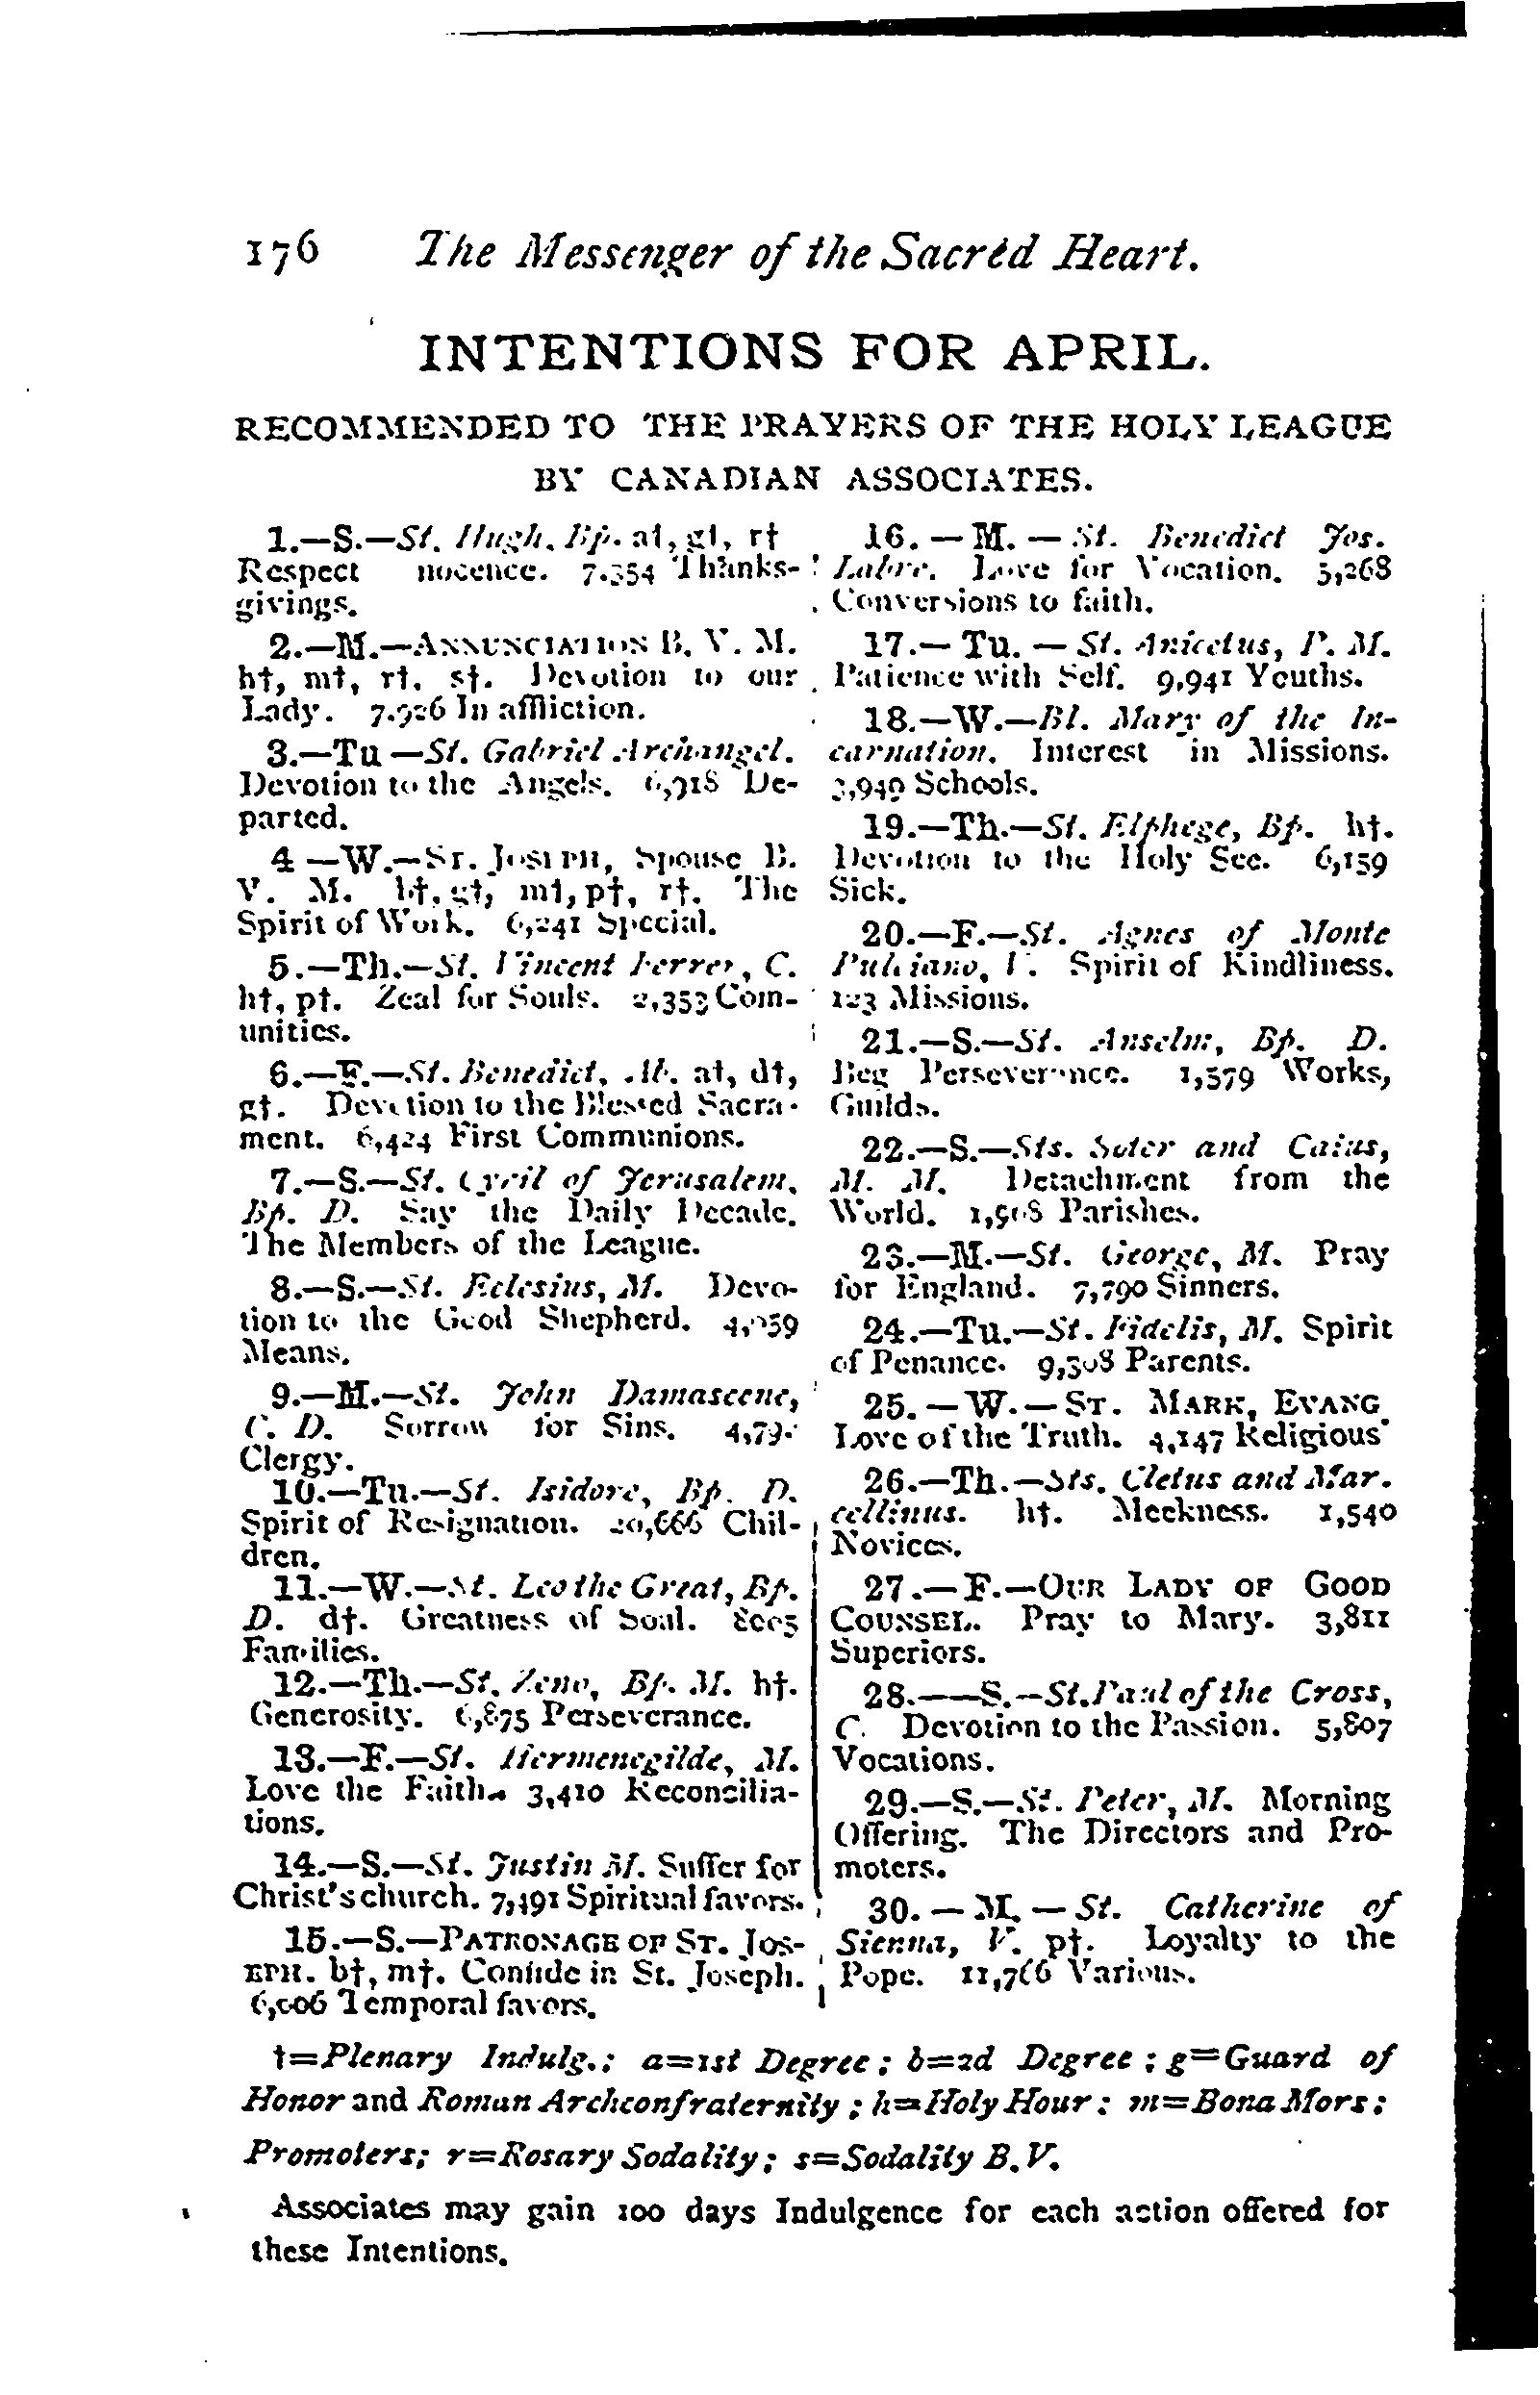 176 The Messenger of the Sacred Heart.
INTENTIONS FOR APRIL.
RECOMMENDED TO THE PRAYERS OF THE HOLY LEAGUE
BY CANADIAN ASSOCIATES.
1.—S.—St. Hugh, Bp. a†, g†, r†
Respect nocence. 7,354 Thanks-
givings.
2.—M.—ANNUNCIATION B. V. M.
h†, m†, r†, s†. Devotion to our
Lady. 7,926 In affliction.
3.—Tu—St. Gabriel Archangel.
Devotion to the Angels. 6,918 De-
parted.
4—W.—ST. JOSEPH, Spouse B.
V. M. b†, g†, m†, p†, r†. The
Spirit of Work. 6,241 Special.
5.—Th.—St. Vincent Ferrer, C.
h†, p†. Zeal for Souls. 2,353 Com-
unities.
6.—F.—St. Benedict, Ab. a†, d†,
g†. Devotion to the Blessed Sacra-
ment. 6,424 First Communions.
7.—S.—St. Cyril of Jerusalem,
Bp. D. Say the Daily Decade.
The Members of the League.
8.—S.—St. Edesius, M. Devo-
tion to the Good Shepherd.
Means.
9.—M.—St. John Damascene,
C. D. Sorrow for Sins.
Clergy.
10.—Tu.—St. Isidore, Bp. D.
Spirit of Resignation. Chil-
dren.
11.—W.—St. Leo the Great, Bp.
D. d†. Greatness of Soul.
Families.
12.—Th.—St. Zeno, Bp. M. h†.
Generosity. 6,875 Perseverance.
13.—F.—St. Hermenegilde, M.
Love the Faith. 3,410 Reconcilia-
tions.
14.—S.—St. Justin M. Suffer for
Christ's church. 7,491 Spiritual favors.
15.—S.—PATRONAGE OF ST. JOS-
EPH. b†, m†. Confide in St. Joseph.
Temporal favors.
16.—M.—St. Benedict Jos.
Labre. Love for Vocation. 5,268
Conversions to faith.
17.—Tu.—St. Anicetus, P. M.
Patience with Self. 9,941 Youths.
18.—W.—Bl. Mary of the In-
carnation. Interest in Missions.
Schools.
19.—Th.—St. Elphege, Bp. h†.
Devotion to the Holy See. 6,159
Sick.
20.—F.—St. Agnes of Monte
Pulciano, V. Spirit of Kindliness.
123 Missions.
21.—S.—St. Anselm, Bp. D.
Beg Perseverance. 1,579 Works,
Guilds.
22.—S.—Sts. Soter and Caius,
M. M. Detachment from the
World. Parishes.
23.—M.—St. George, M. Pray
for England. 7,790 Sinners.
24.—Tu.—St. Fidelis, M. Spirit
of Penance. 9,308 Parents.
25.—W.—ST. MARK, EVANG.
Love of the Truth. 4,147 Religious
26.—Th.—Sts. Cletus and Mar.
cellinus. h†. Meekness. 1,540
Novices.
27.—F.—OUR LADY OF GOOD
COUNSEL. Pray to Mary. 3,811
Superiors.
28.——S.—St. Paul of the Cross,
C. Devotion to the Passion. 5,807
Vocations.
29.—S.—St. Peter, M. Morning
Offering. The Directors and Pro-
moters.
30.—M.—St. Catherine of
Sienna, V. p†. Loyalty to the
Pope. 11,766 Various.
†=Plenary Indulg.; a=1st Degree; b=2d Degree; g=Guard of
Honor and Roman Archconfraternity; h=Holy Hour; m=Bona Mors;
Promoters; r=Rosary Sodality; s=Sodality B. V.
Associates may gain 100 days Indulgence for each action offered for
these Intentions.